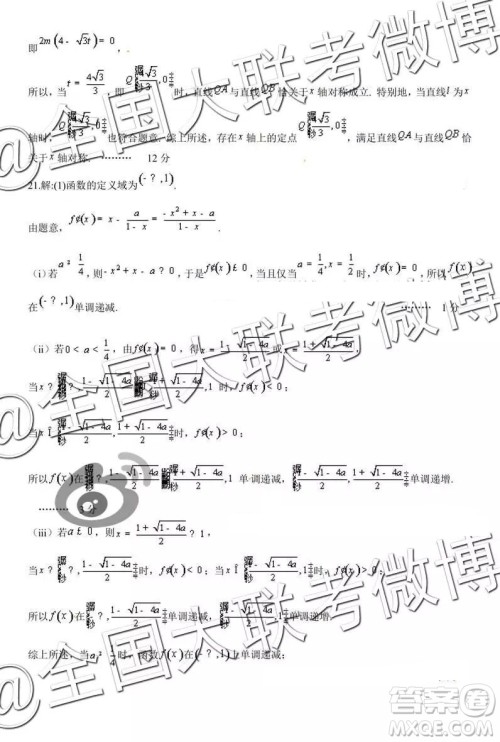 即 2m(4-√3t)=0 ,
所以，当 t=4√3/3 ，即 Q 4√3/3,0 时，直线QA与直线QB恰关于x轴对称成立. 特别地，当直线l为x
轴时， Q 4√3/3,0 也符合题意. 综上所述，存在x轴上的定点 Q 4√3/3,0 ，满足直线QA与直线QB恰
关于x轴对称. ……… 12分
21.解:(1)函数的定义域为(-?,1).
由题意， f¢(x)=x-a/(1-x)=(-x²+x-a)/(1-x) .
（i）若 a³ 1/4 ，则 -x²+x-a?0 ，于是 f¢(x)£0 ，当且仅当 a=1/4,x=1/2 时， f¢(x)=0 ，所以 f(x)
在(-?,1)单调递减. ……… 1分
（ii）若 0<a<1/4 ，由 f¢(x)=0 ，得 x=(1-√(1-4a))/2 或 x=(1+√(1-4a))/2 ，
当 x? ?,(1-√(1-4a))/2 (1+√(1-4a))/2,1 时， f¢(x)<0 ；
当 xÎ (1-√(1-4a))/2,(1+√(1-4a))/2 时， f¢(x)>0 ；
所以 f(x) 在 ?,(1-√(1-4a))/2 , (1+√(1-4a))/2,1 单调递减， (1-√(1-4a))/2,(1+√(1-4a))/2 单调递增.
……… 3分
（iii）若 a£0 ，则 x=(1+√(1-4a))/2 ?1 ，
当 x? ?,(1-√(1-4a))/2 时， f¢(x)<0 ；当 xÎ (1-√(1-4a))/2,1 时， f¢(x)>0 ；
所以 f(x) 在 ?,(1-√(1-4a))/2 单调递减， (1-√(1-4a))/2,1 单调递增.
综上所述，当 a³ 1/4 时，函数 f(x) 在(-?,1)上单调递减；
@全国大联考微博
@全国大联考微博
答案圈
MXQE.COM